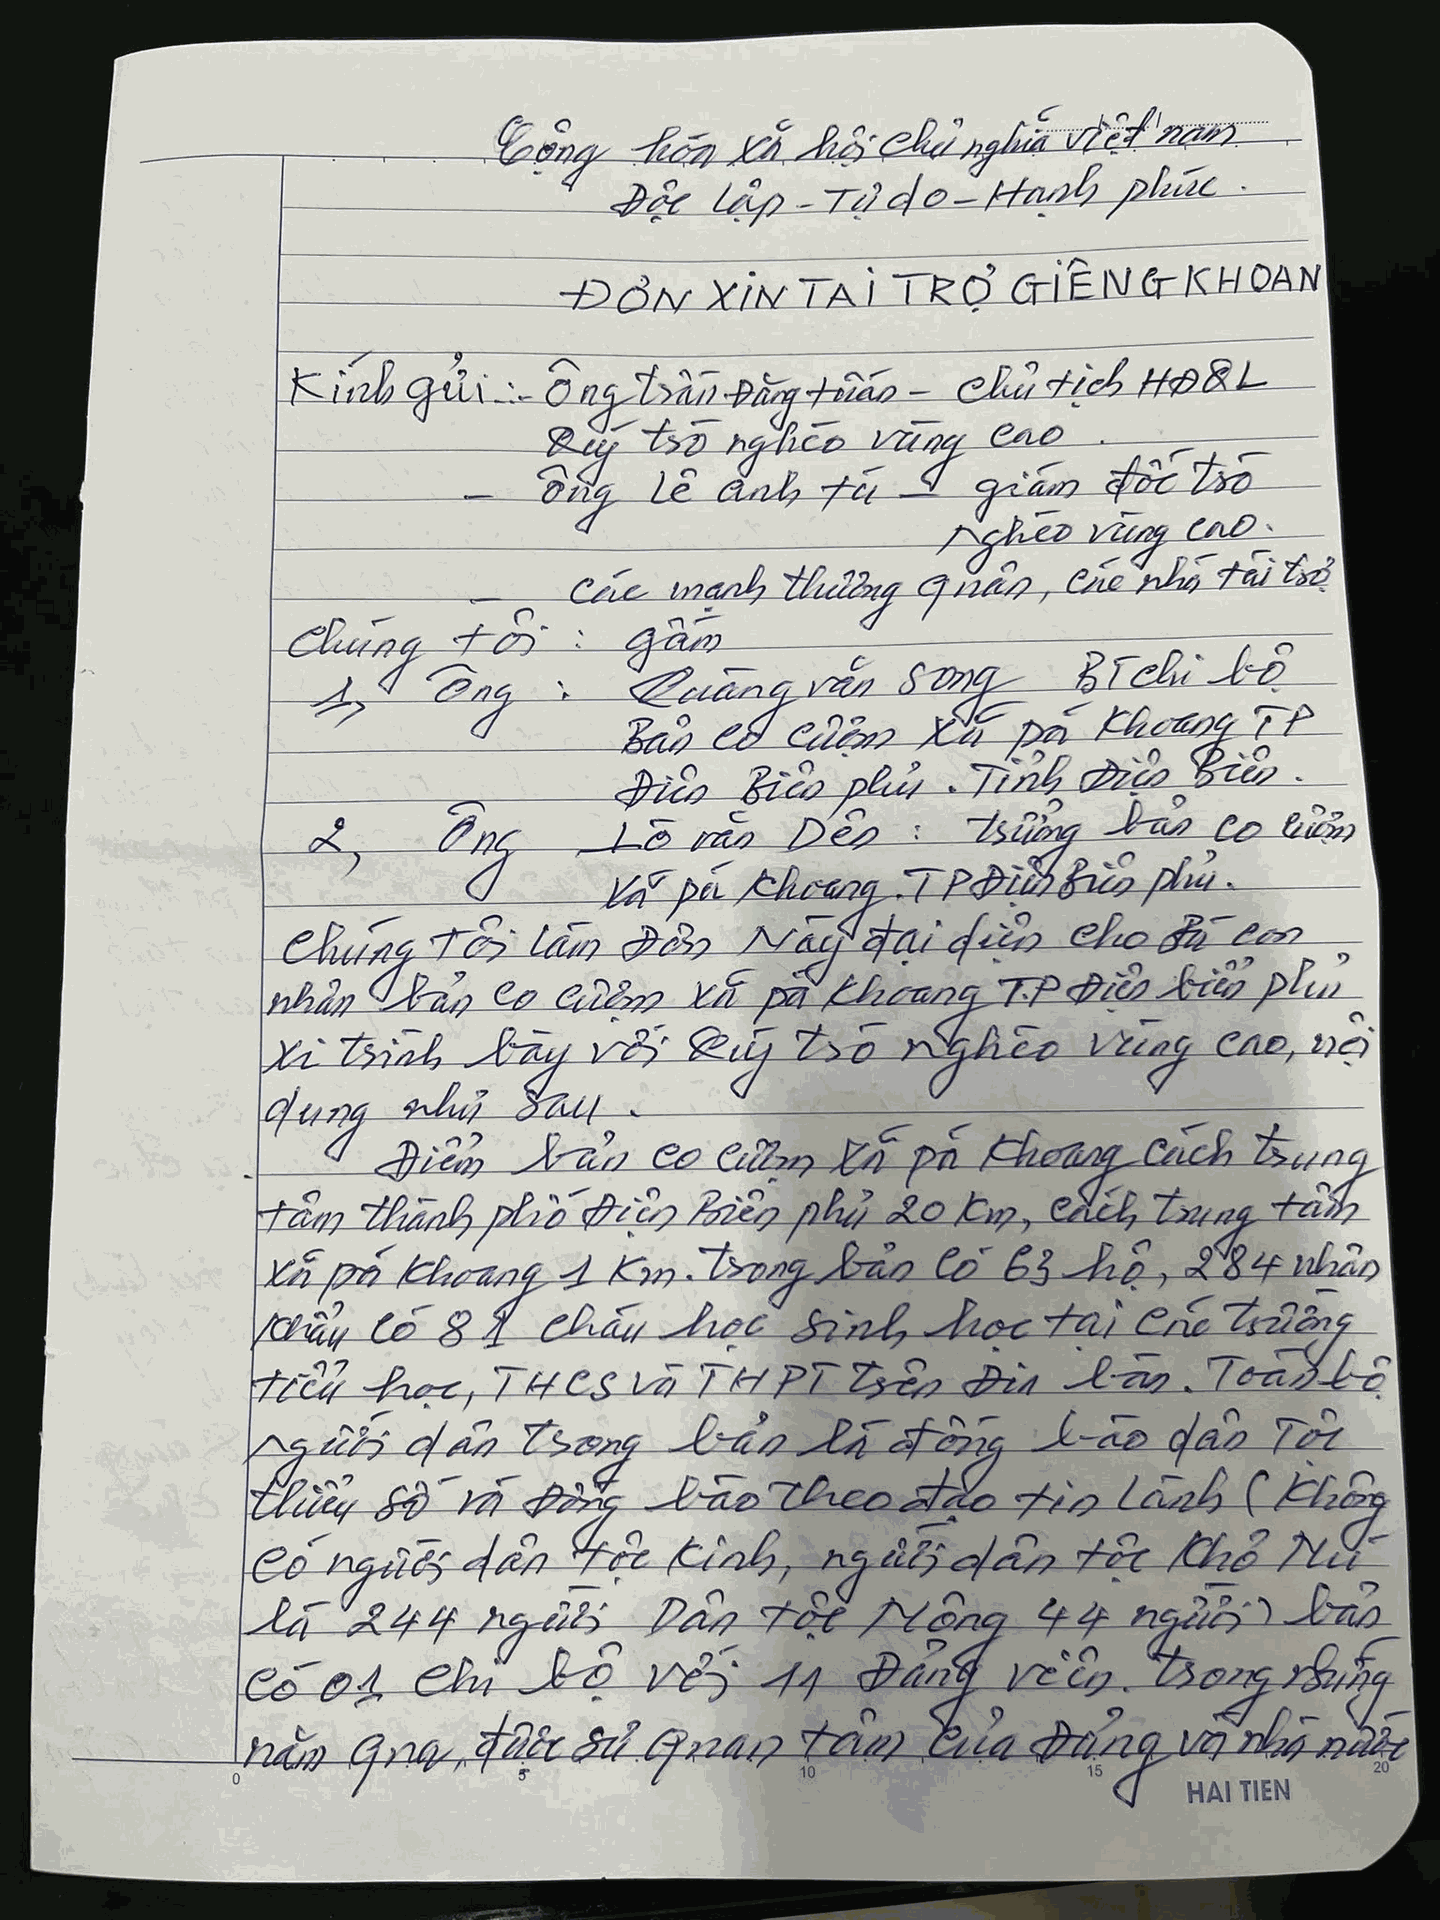 Cộng hòa xã hội chủ nghĩa việt nam
Độc lập - Tự do - Hạnh phúc.
ĐƠN XIN TÀI TRỢ GIẾNG KHOAN
Kính gửi: - Ông trần Đăng tuấn - chủ tịch HĐQL
Quỹ trò nghèo vùng cao.
- Ông Lê anh tú - giám đốc trò
nghèo vùng cao.
- các mạnh thường quân, các nhà tài trợ
chúng tôi: gồm
1, Ông: Quàng văn Song BT chi bộ
Bản co cượm xã pá Khoang TP
Điện Biên phủ. Tỉnh Điện Biên.
2, Ông Lò văn Dên: trưởng bản co cượm
xã pá Khoang. TP Điện Biên phủ.
chúng Tôi làm Đơn Này đại diện cho Bà con
nhân bản co cượm xã pá Khoang T.P Điện biên phủ
xi trình bày với Quỹ trò nghèo vùng cao, nội
dung như sau.
Điểm bản co cượm xã pá Khoang cách trung
tâm thành phố Điện Biên phủ 20 Km, cách trung tâm
xã pá Khoang 1 Km. trong bản có 63 hộ, 284 nhân
khẩu có 81 cháu học sinh học tại các trường
tiểu học, THCS và THPT trên Địa bàn. Toàn bộ
người dân trong bản là đồng bào dân Tộc
thiểu số và Đồng bào theo đạo tin Lành (không
có người dân tộc Kinh, người dân tộc Khơ Mú
là 244 người Dân tộc Mông 44 người) bản
có 01 chi bộ với 11 Đảng viên. trong những
năm qua, được sự quan tâm của Đảng và nhà nước
0 5 10 15 20
HAI TIEN